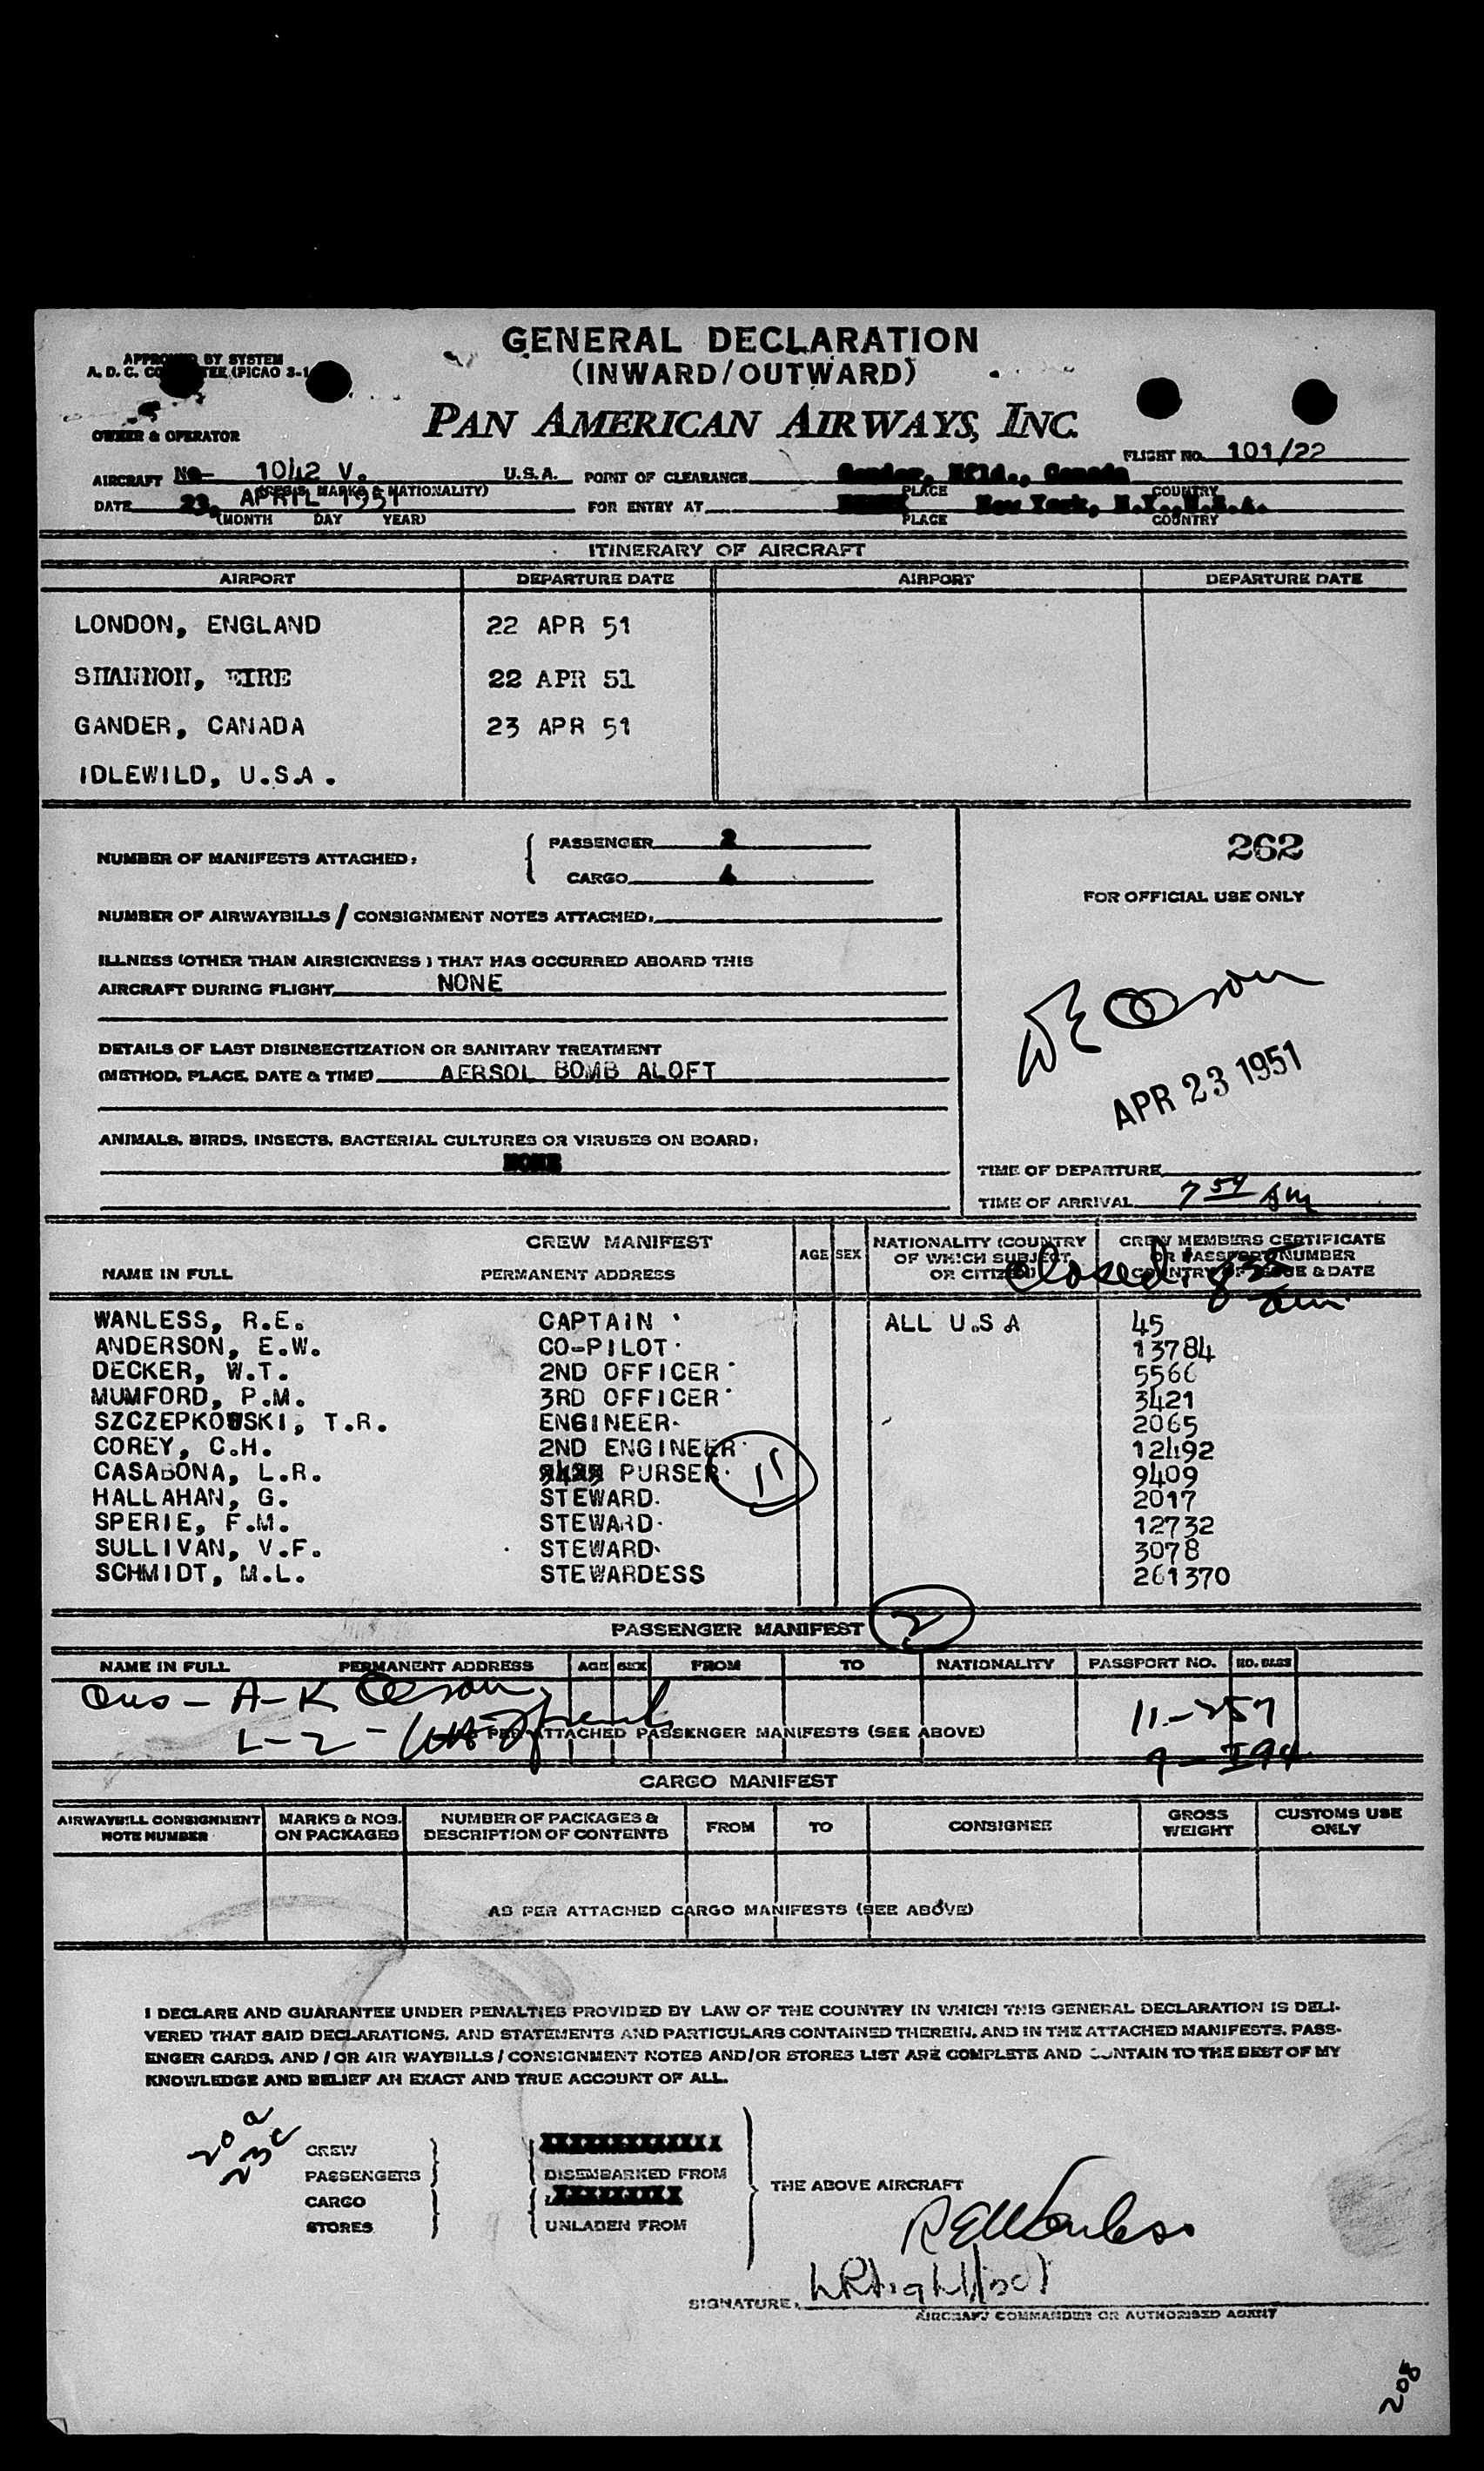 GENERAL DECLARATION
(INWARD/OUTWARD)
APPROVED BY SYSTEM
A. D. C. (PICAO 3-1
PAN AMERICAN AIRWAYS, INC.
OWNER & OPERATOR
FLIGHT NO. 101/22
AIRCRAFT NC- 1042 V. U.S.A. POINT OF CLEARANCE Gander, Nfld., Canada
MARKS & NATIONALITY) PLACE COUNTRY
DATE 23, APRIL 1951 FOR ENTRY AT New York, N.Y., U.S.A.
(MONTH DAY YEAR) PLACE COUNTRY
ITINERARY OF AIRCRAFT
AIRPORT DEPARTURE DATE AIRPORT DEPARTURE DATE
LONDON, ENGLAND 22 APR 51
SHANNON, EIRE 22 APR 51
GANDER, CANADA 23 APR 51
IDLEWILD, U.S.A.
NUMBER OF MANIFESTS ATTACHED: PASSENGER 2
CARGO
262
FOR OFFICIAL USE ONLY
NUMBER OF AIRWAYBILLS / CONSIGNMENT NOTES ATTACHED:
ILLNESS (OTHER THAN AIRSICKNESS) THAT HAS OCCURRED ABOARD THIS
AIRCRAFT DURING FLIGHT NONE
DETAILS OF LAST DISINSECTIZATION OR SANITARY TREATMENT
(METHOD, PLACE, DATE & TIME) AERSOL BOMB ALOFT
APR 23 1951
ANIMALS, BIRDS, INSECTS, BACTERIAL CULTURES OR VIRUSES ON BOARD:
NONE
TIME OF DEPARTURE
TIME OF ARRIVAL 7 54 am
CREW MANIFEST
NAME IN FULL PERMANENT ADDRESS AGE SEX NATIONALITY (COUNTRY OF WHICH SUBJECT OR CITIZEN) CREW MEMBERS CERTIFICATE OR PASSPORT NUMBER COUNTRY OF ISSUE & DATE
Closed: 8 35 am
WANLESS, R.E. CAPTAIN ALL U.S.A 45
ANDERSON, E.W. CO-PILOT 13784
DECKER, W.T. 2ND OFFICER 5566
MUMFORD, P.M. 3RD OFFICER 3421
SZCZEPKOWSKI, T.R. ENGINEER 2065
COREY, C.H. 2ND ENGINEER 12492
CASABONA, L.R. PURSER 9409
11
HALLAHAN, G. STEWARD 2017
SPERIE, F.M. STEWARD 12732
SULLIVAN, V.F. STEWARD 3078
SCHMIDT, M.L. STEWARDESS 261370
PASSENGER MANIFEST 2
NAME IN FULL PERMANENT ADDRESS AGE SEX FROM TO NATIONALITY PASSPORT NO. NO. BAGS
A-K 11-257
L-Z- 9-I94
PER ATTACHED PASSENGER MANIFESTS (SEE ABOVE)
CARGO MANIFEST
AIRWAYBILL CONSIGNMENT NOTE NUMBER MARKS & NOS. ON PACKAGES NUMBER OF PACKAGES & DESCRIPTION OF CONTENTS FROM TO CONSIGNEE GROSS WEIGHT CUSTOMS USE ONLY
AS PER ATTACHED CARGO MANIFESTS (SEE ABOVE)
I DECLARE AND GUARANTEE UNDER PENALTIES PROVIDED BY LAW OF THE COUNTRY IN WHICH THIS GENERAL DECLARATION IS DELI-
VERED THAT SAID DECLARATIONS, AND STATEMENTS AND PARTICULARS CONTAINED THEREIN, AND IN THE ATTACHED MANIFESTS, PASS-
ENGER CARDS, AND / OR AIR WAYBILLS / CONSIGNMENT NOTES AND/OR STORES LIST ARE COMPLETE AND CONTAIN TO THE BEST OF MY
KNOWLEDGE AND BELIEF AN EXACT AND TRUE ACCOUNT OF ALL.
20 a
23 c
CREW
PASSENGERS DISEMBARKED FROM
THE ABOVE AIRCRAFT
CARGO
STORES UNLADEN FROM
REWanless
SIGNATURE:
AIRCRAFT COMMANDER OR AUTHORISED AGENT
208